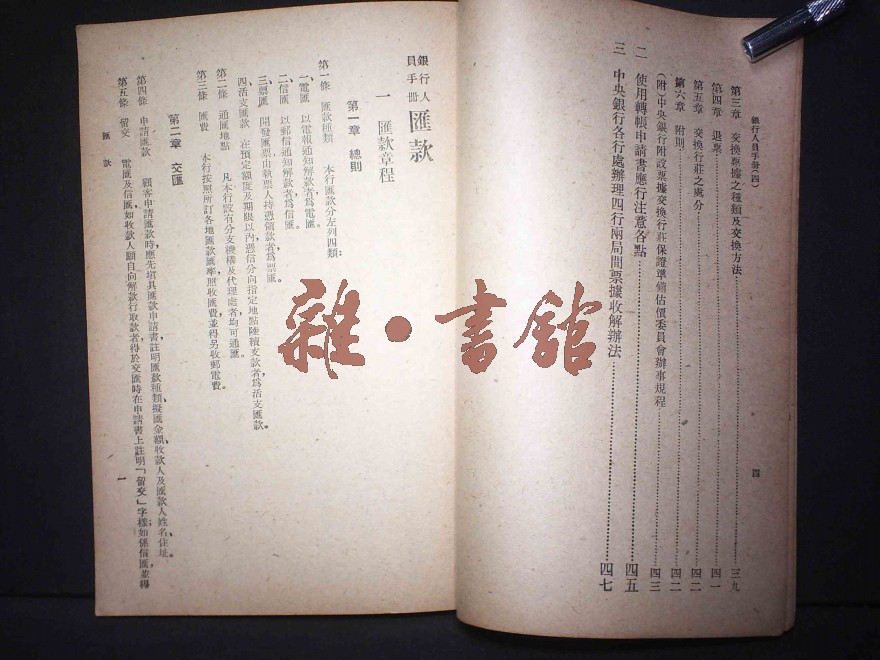 銀行人員手冊(四)
第三章 交換票據之種類及交換方法 三九
第四章 退票 四一
第五章 交換行莊之處分 四二
第六章 附則 四二
(附)中央銀行附設票據交換行莊保證準備估價委員會辦事規程 四三
二 使用轉帳申請書應行注意各點 四五
三 中央銀行各行處辦理四行兩局間票據收解辦法 四七
四
銀行人員手冊 匯款
一 匯款章程
第一章 總則
第一條 匯款種類 本行匯款分左列四類:
一、電匯 以電報通知解款者爲電匯。
二、信匯 以郵信通知解款者爲信匯。
三、票匯 開發匯票由執票人持憑領款者爲票匯。
四、活支匯款 在預定額度及期限以內,憑信分向指定地點陸續支款者爲活支匯款。
第二條 通匯地點 凡本行設有分支機構及代理處者均可通匯。
第三條 匯費 本行按照所訂各地匯款匯率照收匯費,並得另收郵電費。
第二章 交匯
第四條 申請匯款 顧客申請匯款時應先填具匯款申請書註明匯款種類、擬匯金額收款人及匯款人姓名、住址。
第五條 留交 電匯及信匯,如收款人願自向解款行取款者,得於交匯時在申請書上註明「留交」字樣;如係信匯並得
匯款
一
雜·書館